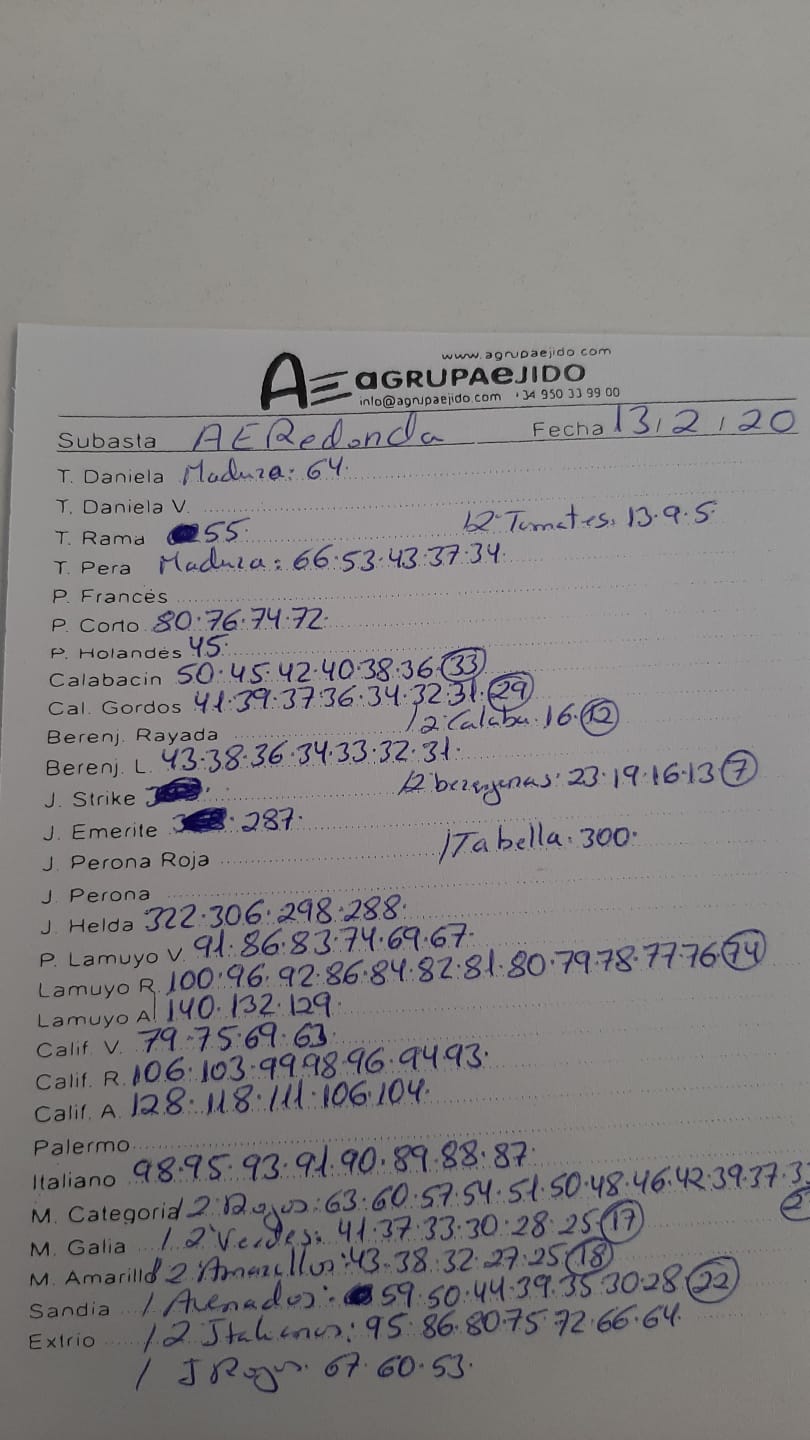 www.agrupaejido.com
AE aGRUPAeJIDO
info@agrupaejido.com +34 950 33 99 00
Subasta AERedonda Fecha 13/2/20
T. Daniela Madura: 64.
T. Daniela V.
T. Rama 55. /2 Tomates. 13.9.5
T. Pera Madura: 66.53.43.37.34.
P. Francés
P. Corto 80.76.74.72.
P. Holandés 45.
Calabacin 50.45.42.40.38.36.33
Cal. Gordos 41.39.37.36.34.32.31.29
Berenj. Rayada /2 Calaba. 16.12
Berenj. L. 43.38.36.34.33.32.31.
J. Strike /2 berengenas: 23.19.16.13.7
J. Emerite 287.
J. Perona Roja /Tabella. 300.
J. Perona
J. Helda 322.306.298.288.
P. Lamuyo V. 91.86.83.74.69.67.
Lamuyo R. 100.96.92.86.84.82.81.80.79.78.77.76.74
Lamuyo A. 140.132.129.
Calif. V. 79.75.69.63
Calif. R. 106.103.99.98.96.94.93.
Calif. A. 128.118.111.106.104.
Palermo
Italiano 98.95.93.91.90.89.88.87.
M. Categoria 2ª Rojos: 63.60.57.54.51.50.48.46.42.39.37.
M. Galia / 2ª Verdes: 41.37.33.30.28.25.17
M. Amarillo 2ª Amarillos: 43.38.32.27.25.18
Sandia / Asenados: 59.50.44.39.35.30.28.22
Extrio / 2 Italianos: 95.86.80.75.72.66.64.
/ I Rojos. 67.60.53.